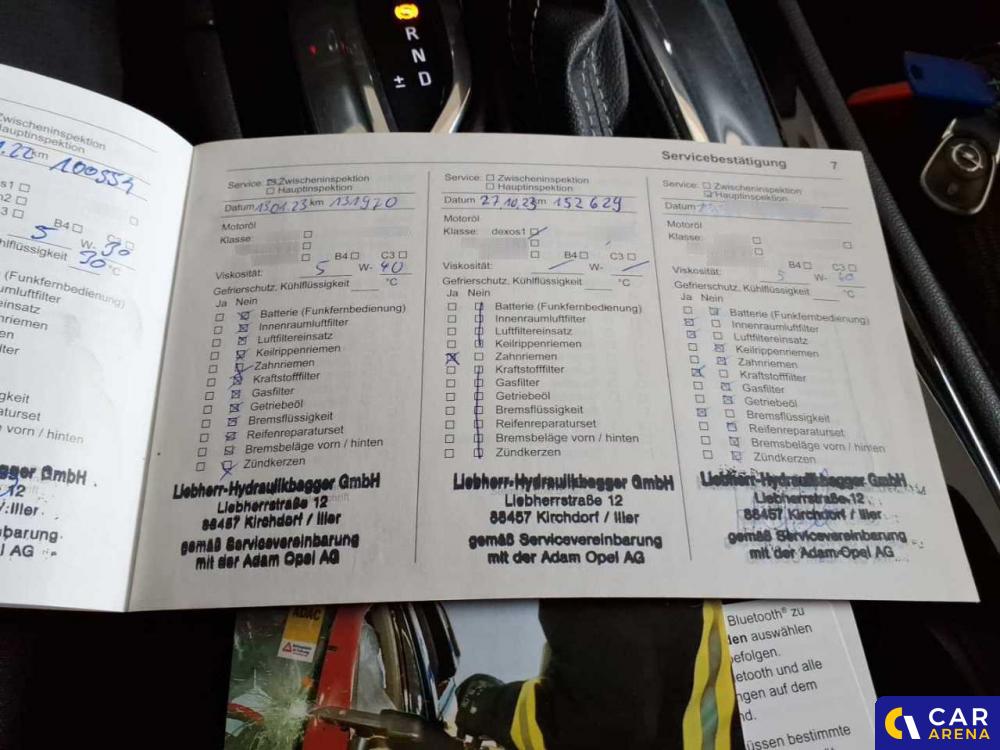 S
R
N
± D
Zwischeninspektion
Hauptinspektion
.22 km 100554
os1
B4 C3
5 W- 30
30 °C
(Funkfernbedienung)
umfilter
nsatz
iemen
en
lter
gkeit
arturset
e vorn / hinten
gger GmbH
12
/ Iller
nbarung
l AG
Servicebestätigung 7
Service: Zwischeninspektion
Hauptinspektion
Datum 13.01.23 km 131920
Motoröl
Klasse:
B4 C3
Viskosität: 5 W- 40
Gefrierschutz, Kühlflüssigkeit °C
Ja Nein
Batterie (Funkfernbedienung)
Innenraumluftfilter
Luftfiltereinsatz
Keilrippenriemen
Zahnriemen
Kraftstofffilter
Gasfilter
Getriebeöl
Bremsflüssigkeit
Reifenreparaturset
Bremsbeläge vorn / hinten
Zündkerzen
Liebherr-Hydraulikbagger GmbH
Liebherrstraße 12
88457 Kirchdorf / Iller
gemäß Servicevereinbarung
mit der Adam Opel AG
Service: Zwischeninspektion
Hauptinspektion
Datum 27.10.23 km 152629
Motoröl
Klasse: dexos1
B4 C3
Viskosität: W-
Gefrierschutz, Kühlflüssigkeit °C
Ja Nein
Batterie (Funkfernbedienung)
Innenraumluftfilter
Luftfiltereinsatz
Keilrippenriemen
Zahnriemen
Kraftstofffilter
Gasfilter
Getriebeöl
Bremsflüssigkeit
Reifenreparaturset
Bremsbeläge vorn / hinten
Zündkerzen
Liebherr-Hydraulikbagger GmbH
Liebherrstraße 12
88457 Kirchdorf / Iller
gemäß Servicevereinbarung
mit der Adam Opel AG
Service: Zwischeninspektion
Hauptinspektion
Datum
Motoröl
Klasse:
B4 C3
Viskosität: 5 W-
Gefrierschutz, Kühlflüssigkeit °C
Ja Nein
Batterie (Funkfernbedienung)
Innenraumluftfilter
Luftfiltereinsatz
Keilrippenriemen
Zahnriemen
Kraftstofffilter
Gasfilter
Getriebeöl
Bremsflüssigkeit
Reifenreparaturset
Bremsbeläge vorn / hinten
Zündkerzen
Liebherr-Hydraulikbagger GmbH
Liebherrstraße 12
88457 Kirchdorf / Iller
gemäß Servicevereinbarung
mit der Adam Opel AG
ADAC
Bluetooth® zu
len auswählen
efolgen.
etooth und alle
ngen auf dem
nd.
üssen bestimmte
CAR
ARENA